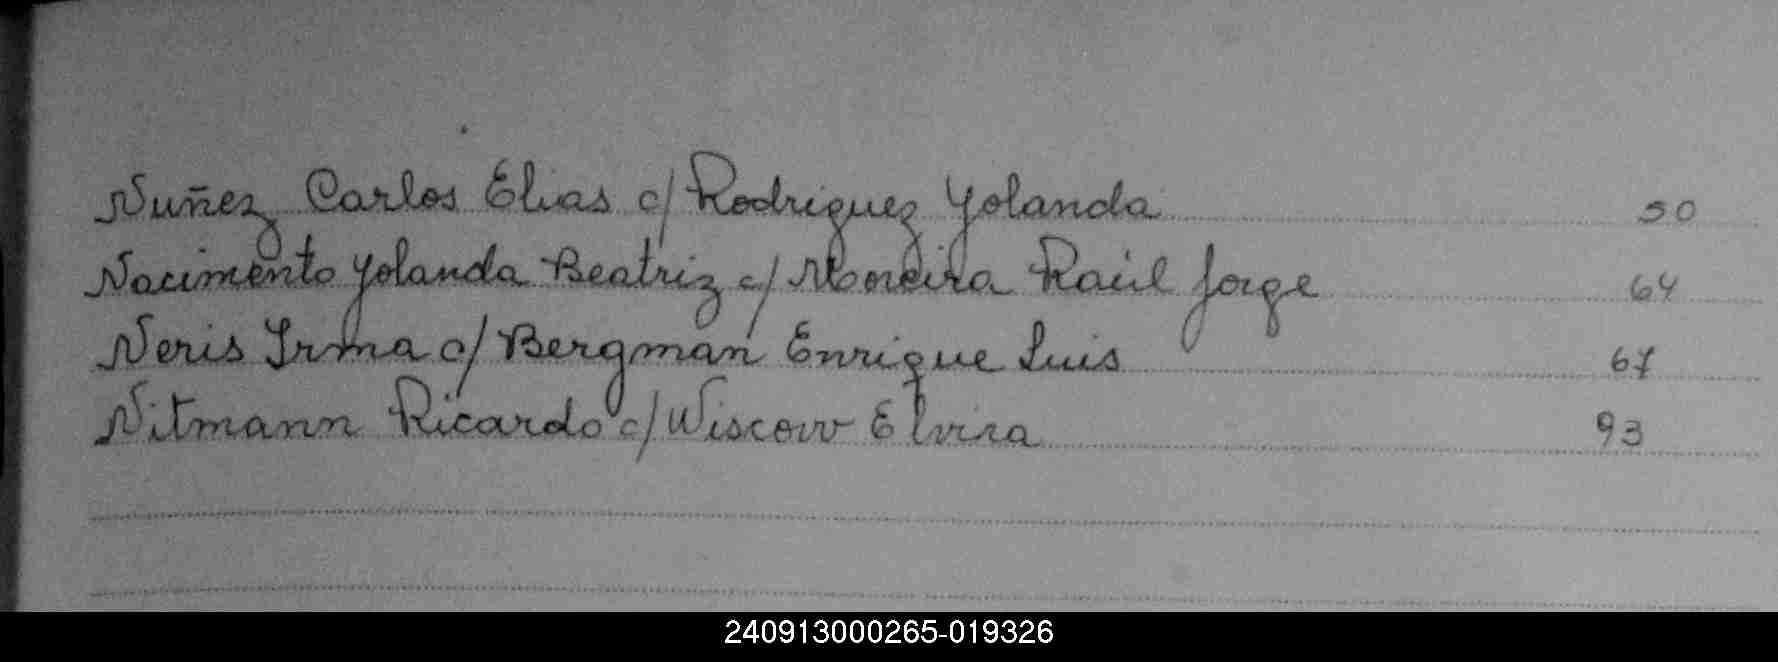 Nuñez Carlos Elias c/ Rodriguez Yolanda 50
Nacimento Yolanda Beatriz c/ Moreira Raúl Jorge 64
Neris Irma c/ Bergman Enrique Luis 67
Nitmann Ricardo c/ Wiscow Elvira 93
240913000265-019326